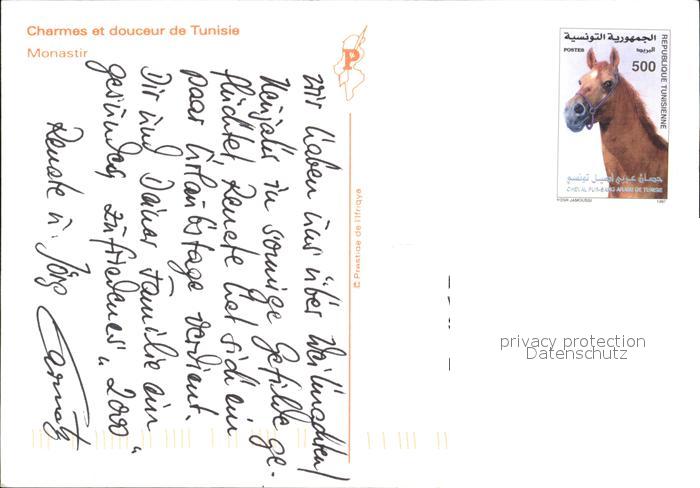 Charmes et douceur de Tunisie
Monastir
P
wir haben uns über Weihnachten/
Neujahr in sonnige Gefilde ge-
flüchtet. Renate hat sich ein
paar Urlaubstage verdient.
Dir und Deiner Familie ein
gesundes, zufriedenes „2000“
Renate u. Jörg
© Prestige de l'Ifriqya
الجمهورية التونسية
البريد
POSTES
500
REPUBLIQUE TUNISIENNE
حصان عربي أصيل تونسي
CHEVAL PUR-SANG ARABE DE TUNISIE
YOSR JAMOUSSI 1997
privacy protection
Datenschutz